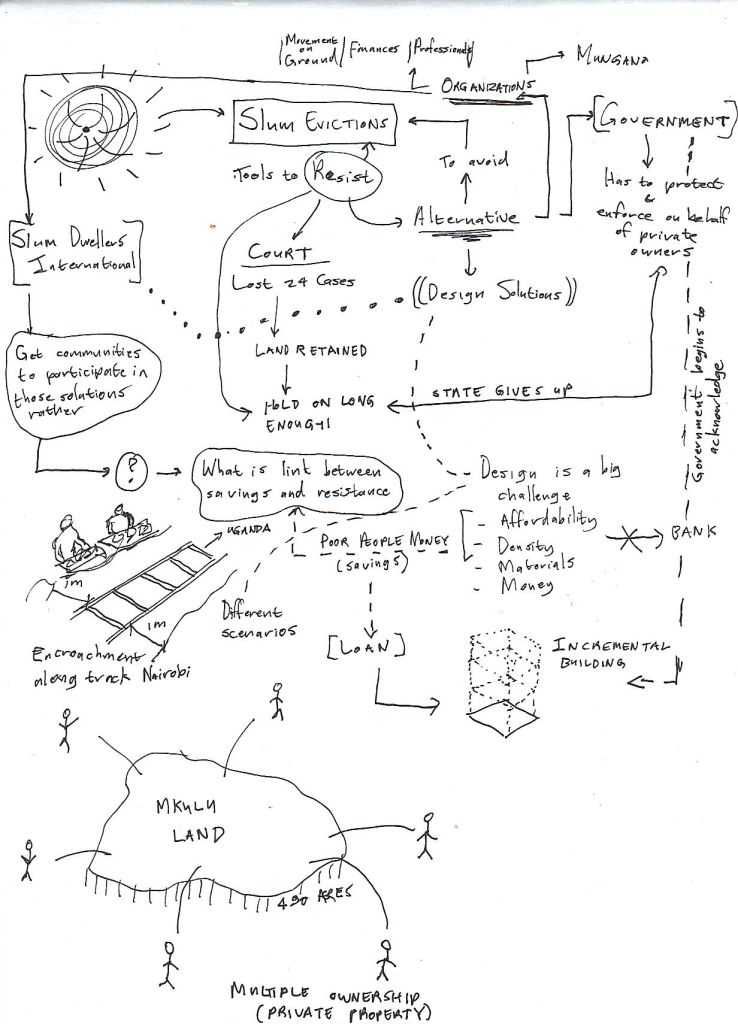 Movement on Ground
Finances
Professionals
ORGANIZATIONS
MUNGANO
SLUM EVICTIONS
[GOVERNMENT]
Tools to Resist
To avoid
Alternative
Has to protect
&
enforce on behalf
of private
owners
Slum Dwellers
International
COURT
Lost 24 Cases
((Design Solutions))
LAND RETAINED
Get communities
to participate in
those solutions
rather
HOLD ON LONG
ENOUGH!
STATE GIVES UP
Government begins to
acknowledge
?
What is lint between
savings and resistance
Design is a big
challenge
- Affordability
- Density
- Materials
- Money
BANK
UGANDA
POOR PEOPLE MONEY
(savings)
1m
1m
Different
scenarios
Encroachment
along track Nairobi
[LOAN]
INCREMENTAL
BUILDING
MKULU
LAND
490 ACRES
MULTIPLE OWNERSHIP
(PRIVATE PROPERTY)